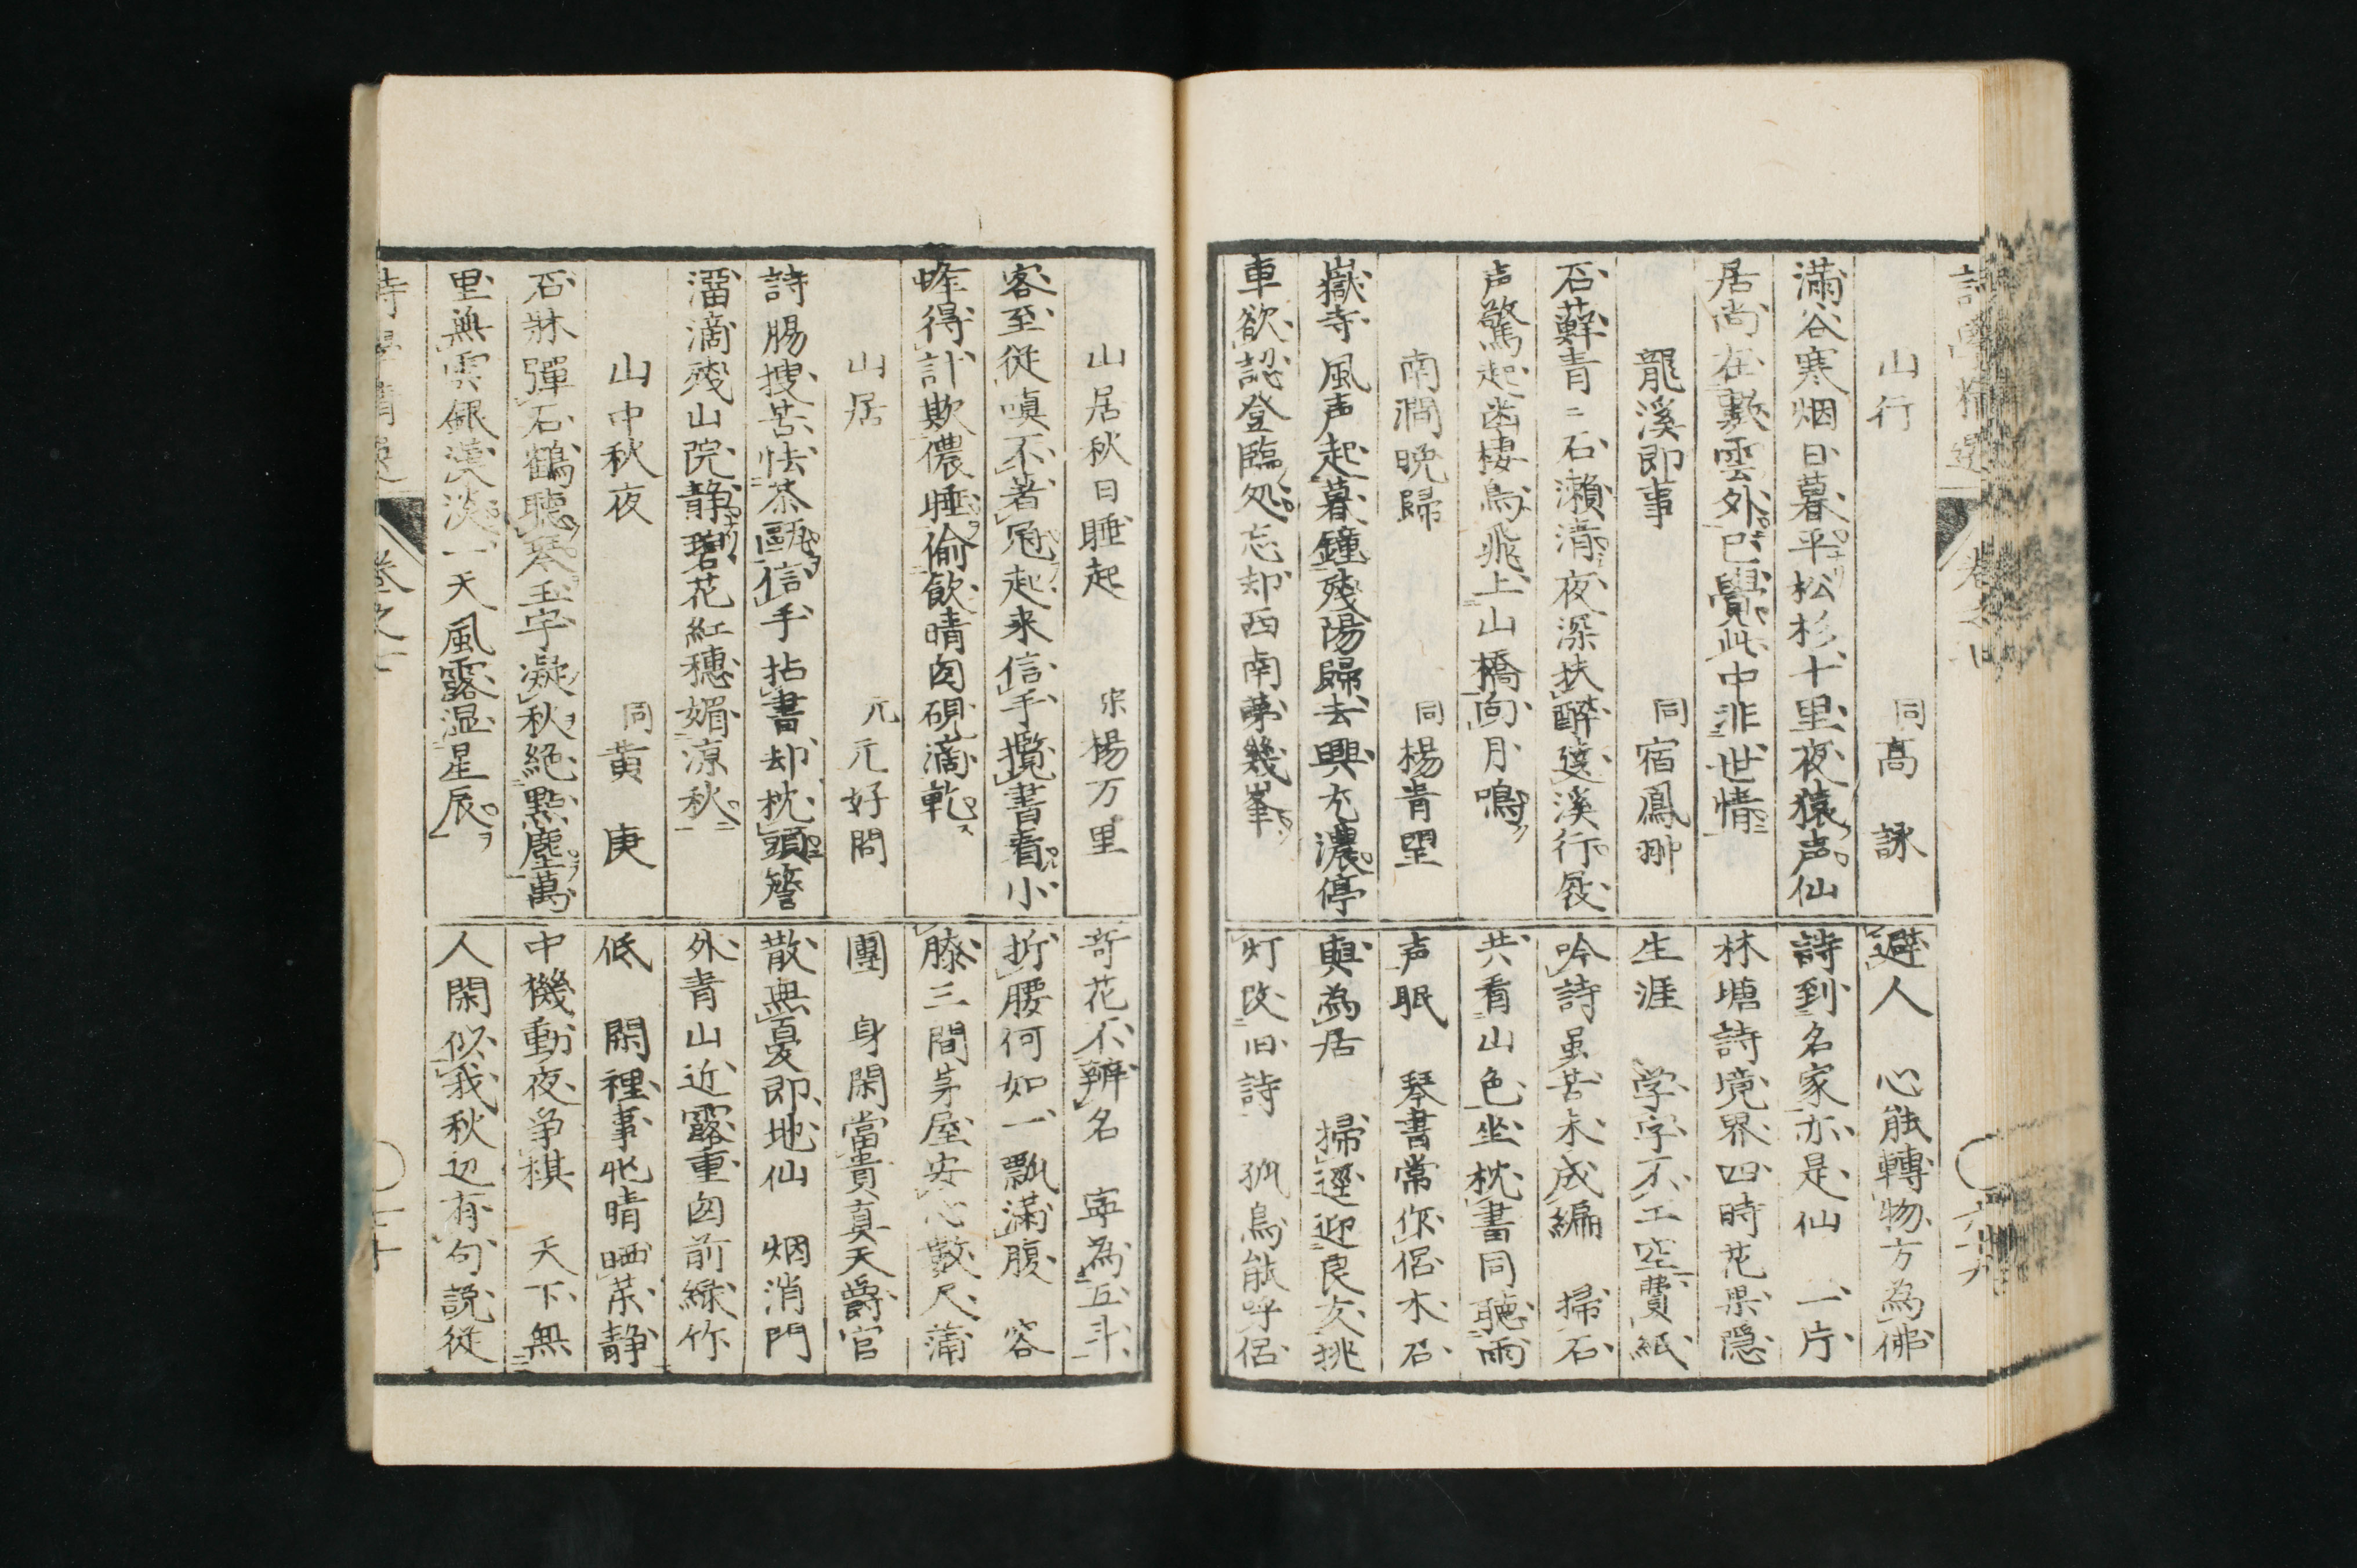 山行　同高　詠
滿谷寒烟日暮平松杉十里夜猿声仙
居尚在數雲外已覺此中非世情
龍溪即事　同宿鳳翀
石蘚青〻石瀬清夜深扶醉遶溪行屐
声驚起幽棲鳥飛上山橋向月鳴
南澗晩歸　同楊肯望
嶽寺風声起暮鐘殘陽歸去興尤濃停
車欲認登臨処忘却西南第幾峯
避人　心能轉物方為佛
詩到名家亦是仙　一片
林塘詩境界四時花果隠
生涯　学字不工空費紙
吟詩虽苦未成編　掃石
共看山色坐枕書同聽雨
声眠　琴書常作侶木石
與為居　掃逕迎良友挑
灯改旧詩　孤鳥能呼侶
山居秋日睡起　宋楊万里
客至従嗔不著冠起来信手攬書看小
蜂得計欺儂睡偷飲晴囱硯滴乾
山居　元元好問
詩腸搜苦怯茶甌信手拈書却枕頭簷
溜滴殘山院静碧花紅穗媚凉秋
山中秋夜　同黄　庚
石牀彈石鶴聴寒玉宇凝秋絶點塵萬
里無雲銀漢淡一天風露湿星辰
奇花不辨名　寧為五斗
折腰何如一瓢滿腹　容
膝三間茅屋安心數尺蒲
團　身閑當貴真天爵官
散無憂即地仙　烟消門
外青山近露重囱前緑竹
低　閑裡事忙晴晒薬静
中機動夜争棋　天下無
人閑似我秋辺有句説従
詩學精選　卷之